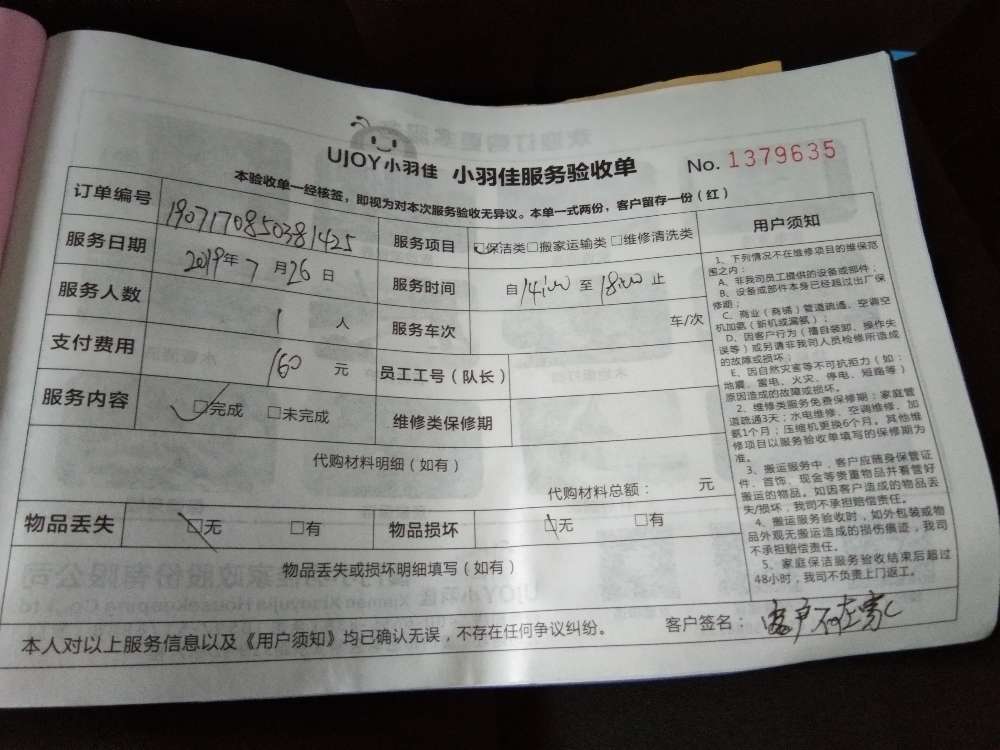 UJOY小羽佳 小羽佳服务验收单 No. 1379635
本验收单一经核签，即视为对本次服务验收无异议。本单一式两份，客户留存一份（红）
订单编号 190717085038 1425 服务项目 ☑保洁类□搬家运输类□维修清洗类
服务日期 2019年 7 月 26 日 服务时间 自 14:00 至 18:00 止
服务人数 1 人 服务车次 车/次
支付费用 160 元 员工工号（队长）
服务内容 ☑完成 □未完成 维修类保修期
代购材料明细（如有）
代购材料总额： 元
物品丢失 ☑无 □有 物品损坏 ☑无 □有
物品丢失或损坏明细填写（如有）
用户须知
1、下列情况不在维修项目的维保范
围之内：
A、非我司员工提供的设备或部件；
B、设备或部件本身已经超过出厂保
修期；
C、商业（商铺）管道疏通、空调空
机加氨（新机或漏氨）；
D、因客户行为（擅自装卸、操作失
误等）或另请非我司人员检修所造成
的故障或损坏；
E、因自然灾害等不可抗拒力（如：
地震、雷电、火灾、停电、短路等）
原因造成的故障或损坏。
2、维修类服务免费保修期：家庭管
道疏通3天；水电维修、空调维修、加
氨1个月；压缩机更换6个月。其他维
修项目以服务验收单填写的保修期为
准。
3、搬运服务中，客户应随身保管证
件、首饰、现金等贵重物品并看管好
搬运的物品。如因客户造成的物品丢
失/损坏，我司不承担赔偿责任。
4、搬运服务验收时，如外包装或物
品外观无搬运造成的损伤痕迹，我司
不承担赔偿责任。
5、家庭保洁服务验收结束后超过
48小时，我司不负责上门返工。
本人对以上服务信息以及《用户须知》均已确认无误，不存在任何争议纠纷。 客户签名： 客户不在家